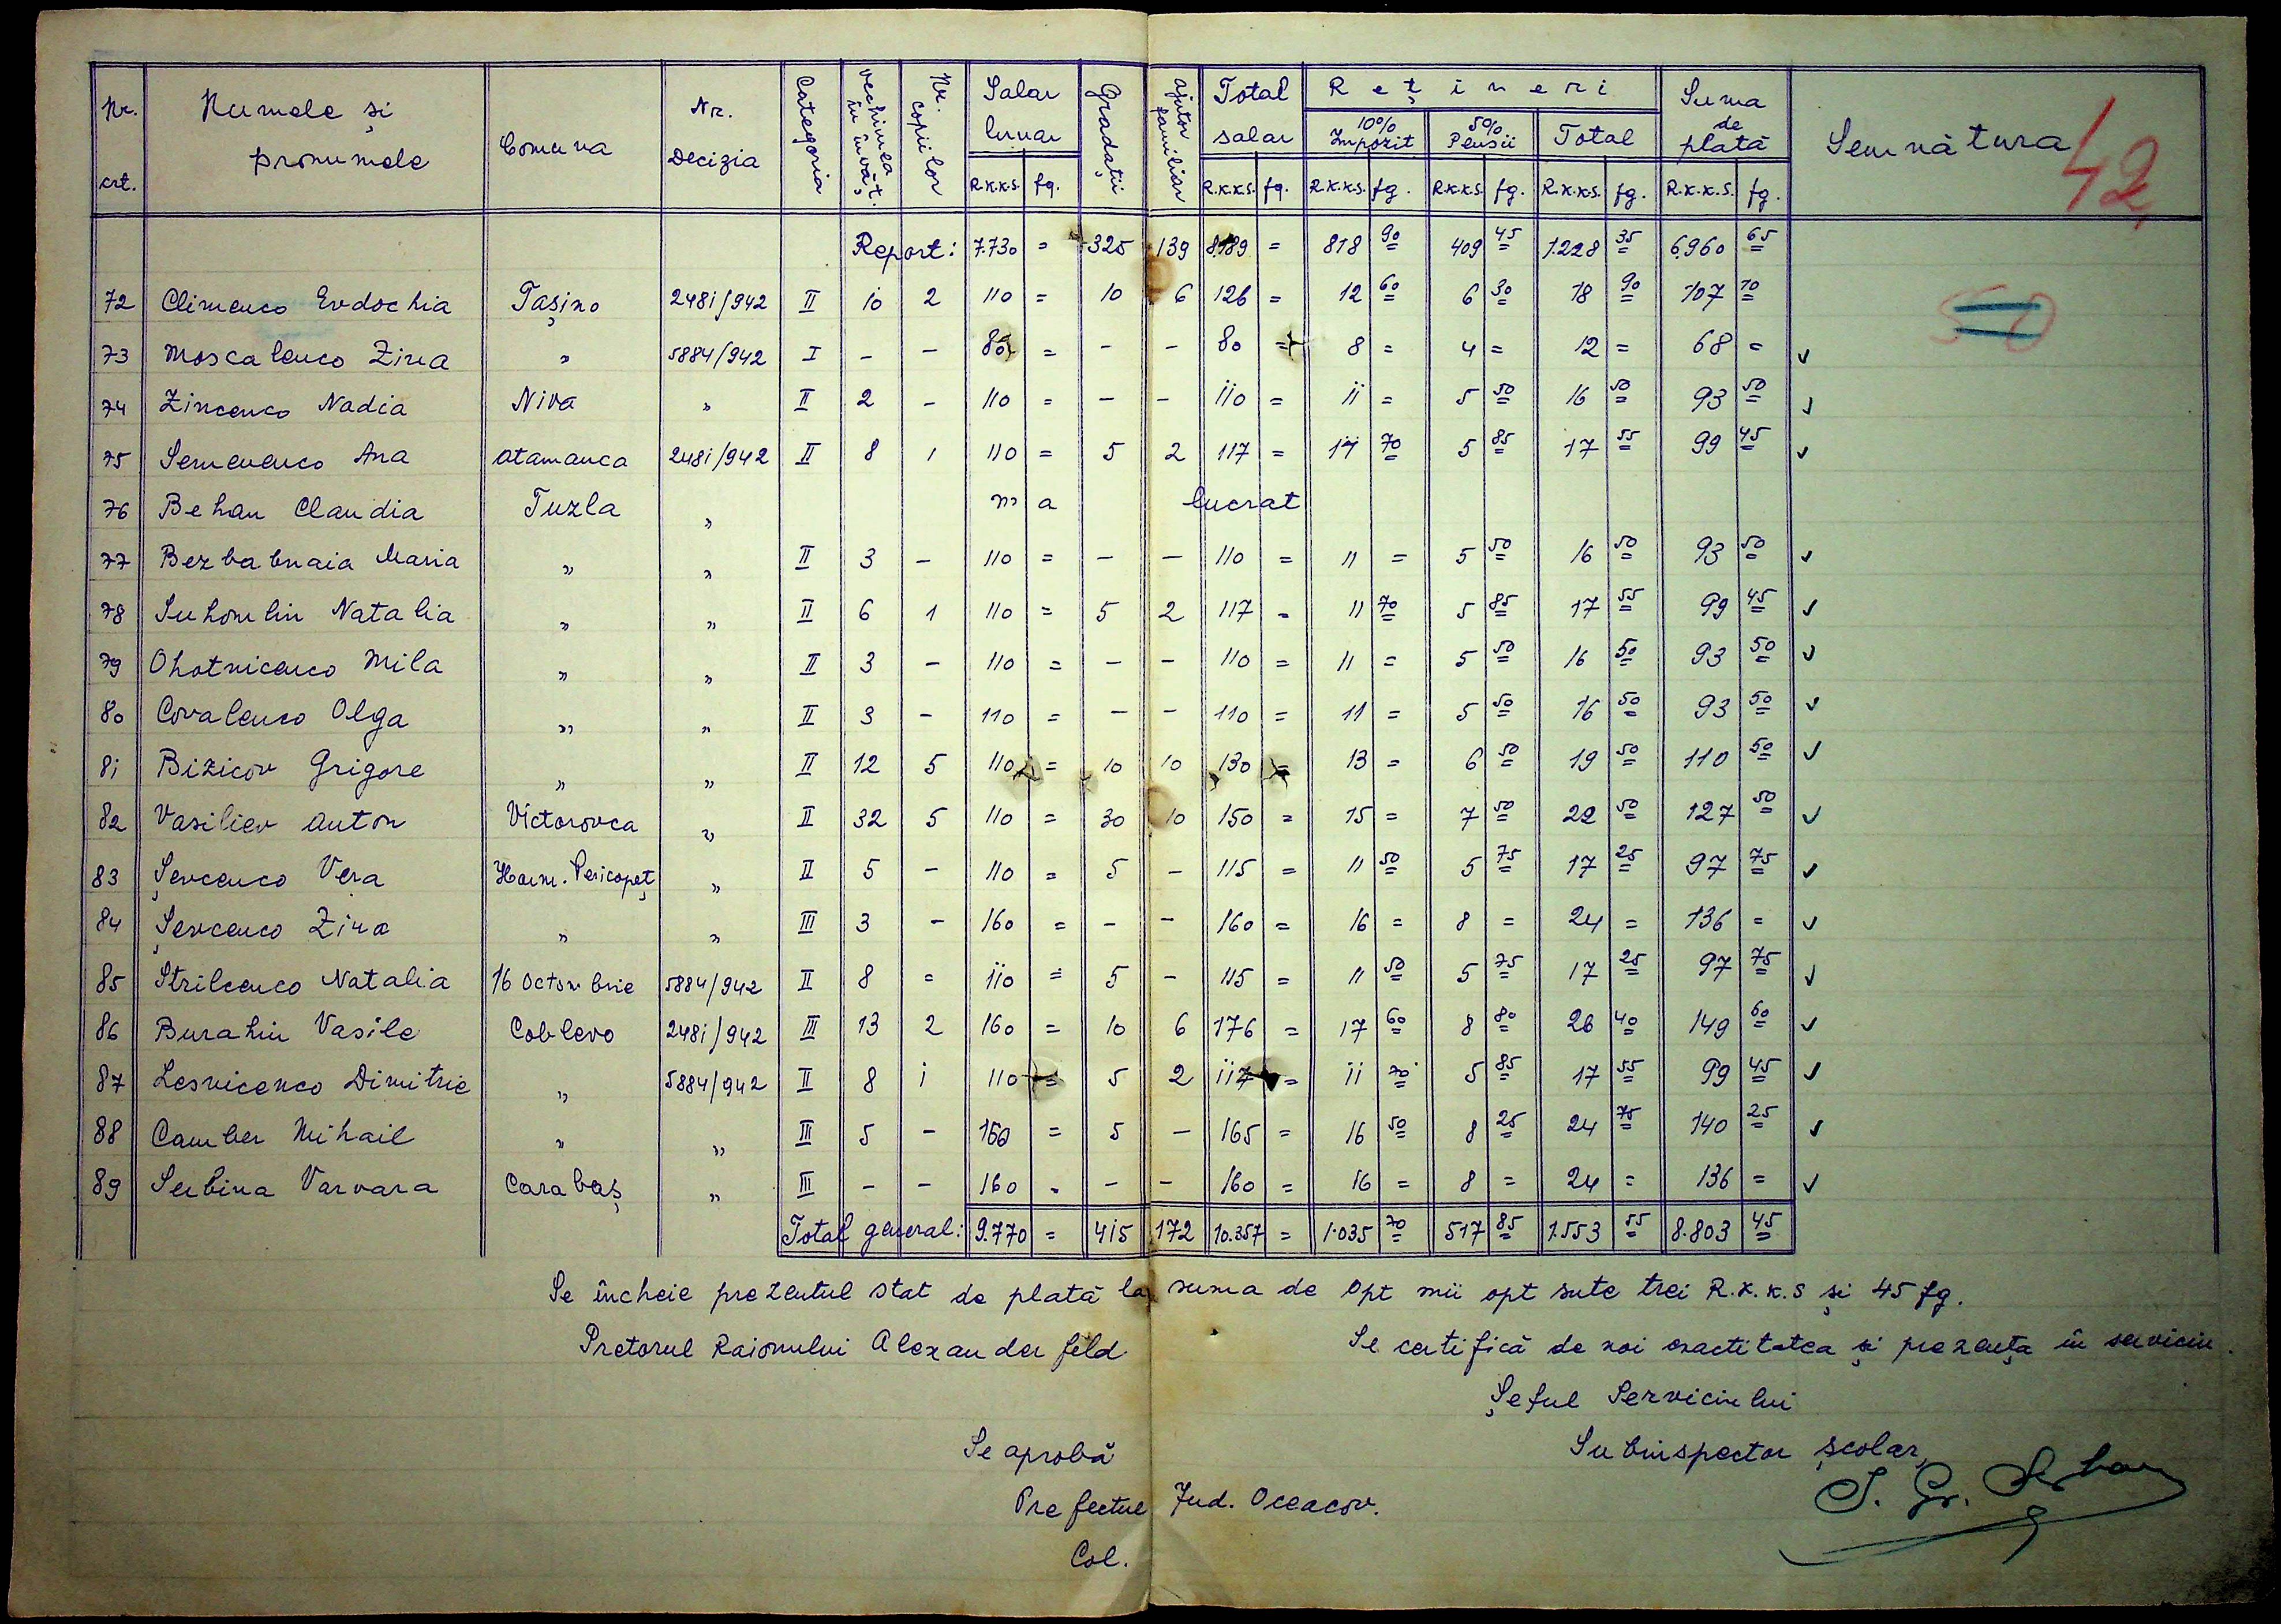 Nr. crt. Numele și pronumele Comuna Nr. Decizia Categoria vechimea în învăț. Nr. copiilor Salar lunar Gradații ajutor familiar Total salar Rețineri Suma de plată Semnătura 42
10% Impozit 5% Pensii Total
R.K.K.S. fg. R.K.K.S. fg. R.K.K.S. fg. R.K.K.S. fg. R.K.K.S. fg. R.K.K.S. fg.
Report: 7.730 = 325 139 8.189 = 818 90 409 45 1.228 35 6.960 65
72 Climenco Evdochia Tașino 2481/942 II 10 2 110 = 10 6 126 = 12 60 6 30 18 90 107 10
50
73 Moscalenco Zina " 5884/942 I - - 80 = - - 80 = 8 = 4 = 12 = 68 = ✓
74 Zincenco Nadia Niva " II 2 - 110 = - - 110 = 11 = 5 50 16 50 93 50 ✓
75 Semenenco Ana Atamanca 2481/942 II 8 1 110 = 5 2 117 = 11 70 5 85 17 55 99 45 ✓
76 Behan Claudia Tuzla " n'a lucrat
77 Bezbabnaia Maria " " II 3 - 110 = - - 110 = 11 = 5 50 16 50 93 50 ✓
78 Suhomlin Natalia " " II 6 1 110 = 5 2 117 = 11 70 5 85 17 55 99 45 ✓
79 Ohotnicenco Mila " " II 3 - 110 = - - 110 = 11 = 5 50 16 50 93 50 ✓
80 Covalenco Olga " " II 3 - 110 = - - 110 = 11 = 5 50 16 50 93 50 ✓
81 Bizicov Grigore " " II 12 5 110 = 10 10 130 = 13 = 6 50 19 50 110 50 ✓
82 Vasiliev Anton Victorovca " II 32 5 110 = 30 10 150 = 15 = 7 50 22 50 127 50 ✓
83 Șevcenco Vera Haem. Pericopeț " II 5 - 110 = 5 - 115 = 11 50 5 75 17 25 97 75 ✓
84 Șevcenco Zina " " III 3 - 160 = - - 160 = 16 = 8 = 24 = 136 = ✓
85 Strilcenco Natalia 16 Octombrie 5884/942 II 8 = 110 = 5 - 115 = 11 50 5 75 17 25 97 75 ✓
86 Burahin Vasile Coblevo 2481/942 III 13 2 160 = 10 6 176 = 17 60 8 80 26 40 149 60 ✓
87 Lesnicenco Dimitrie " 5884/942 II 8 1 110 = 5 2 117 = 11 70 5 85 17 55 99 45 ✓
88 Camber Mihail " " III 5 - 160 = 5 - 165 = 16 50 8 25 24 75 140 25 ✓
89 Serbina Varvara Carabaș " III - - 160 = - - 160 = 16 = 8 = 24 = 136 = ✓
Total general: 9.770 = 415 172 10.357 = 1.035 70 517 85 1.553 55 8.803 45
Se încheie prezentul stat de plată la suma de opt mii opt sute trei R.K.K.S și 45 fg.
Pretorul Raionului Alexanderfeld
Se certifică de noi exactitatea și prezența în serviciu.
Șeful Serviciului
Subinspector școlar,
Se aprobă
Prefectul Jud. Oceacov.
Col.